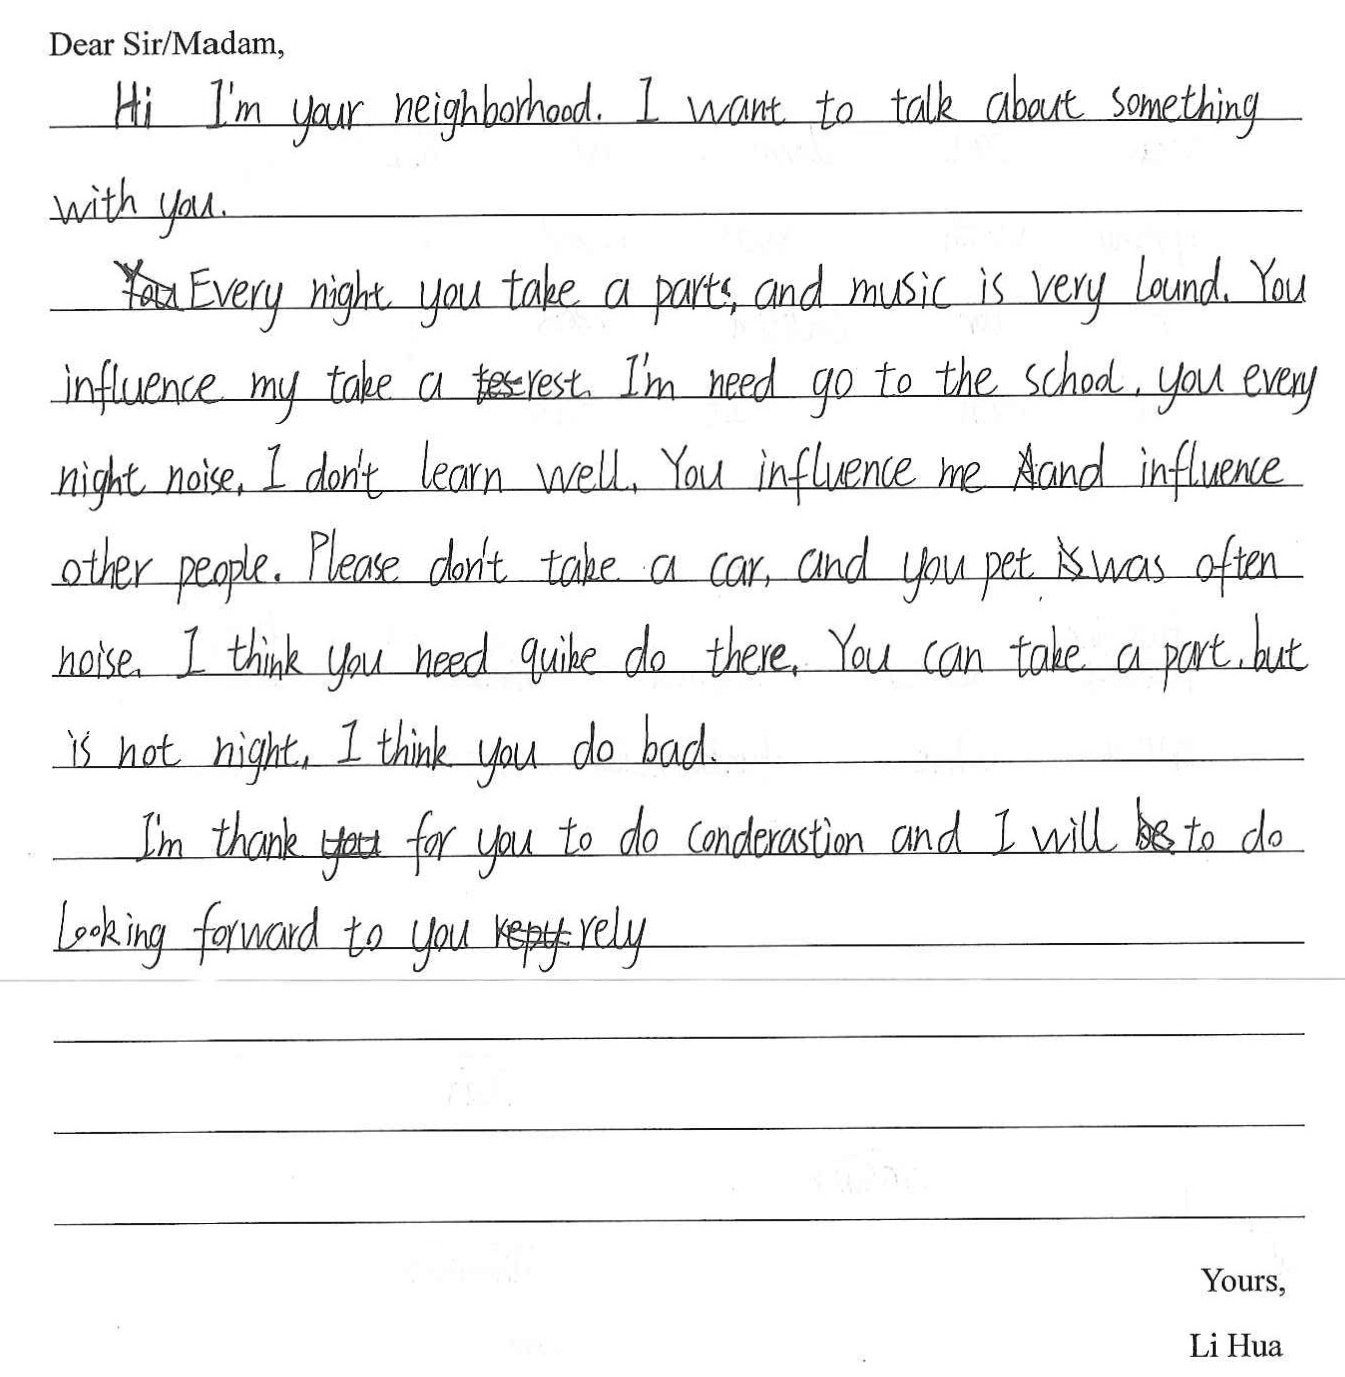 Dear Sir/Madam,
Hi I'm your neighborhood. I want to talk about something
with you.
Every night you take a parts, and music is very lound. You
influence my take a rest. I'm need go to the school, you every
night noise, I don't learn well, You influence me and influence
other people. Please don't take a car, and you pet was often
noise. I think you need quike do there, You can take a part, but
is not night, I think you do bad.
I'm thank for you to do conderastion and I will to do
Looking forward to you rely
Yours,
Li Hua